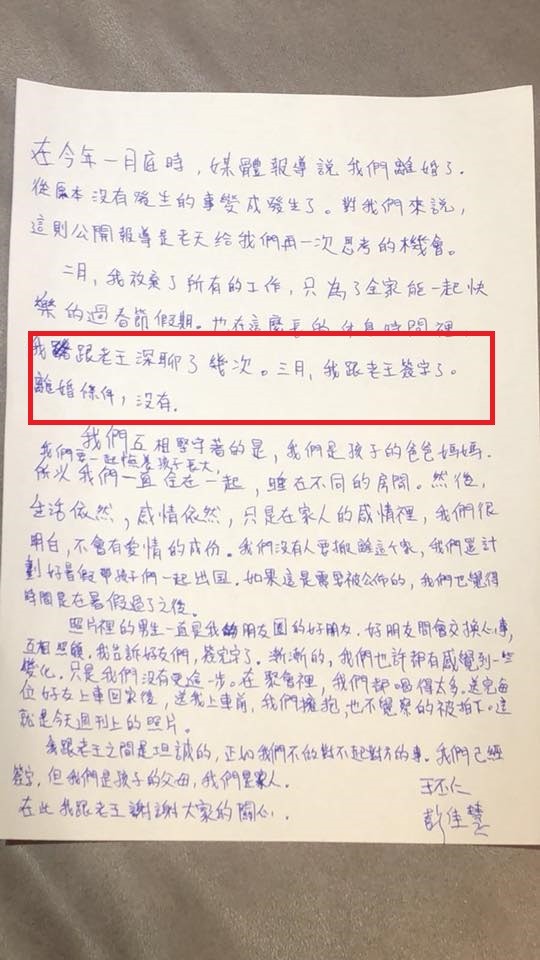 在今年一月底時，媒體報導說我們離婚了．
從原本沒有發生的事變成發生了。對我們來說，
這則公開報導是老天給我們再一次思考的機會。
二月，我放棄了所有的工作，只為了全家能一起快
樂的過春節假期。也在這麼長的休息時間裡，
我跟老王深聊了幾次。三月，我跟老王簽字了。
離婚條件，沒有．
我們互相堅守著的是，我們是孩子的爸爸媽媽．
我們要一起陪著孩子長大，
所以我們一直住在一起，睡在不同的房間。然後，
生活依然，感情依然，只是在家人的感情裡，我們很
明白，不會有愛情的成份。我們沒有人要搬離這個家，我們還計
劃好暑假帶孩子們一起出国．如果這是需要被公佈的，我們也覺得
時間是在暑假過了之後。
照片裡的男生一直是我的朋友圈的好朋友．好朋友間會交換心事，
互相照顧．我告訴好友們，簽完字了．漸漸的，我們也許都有感覺到一些
變化．只是我們沒有更進一步。在聚會裡，我們都喝得太多．送完每
位好友上車回家後，送我上車前，我們擁抱，也不覺察的被拍下．這
就是今天週刊上的照片。
我跟老王之間是坦誠的，正如我們不做對不起對方的事．我們已經
簽字，但我們是孩子的父母，我們是家人．
王丕仁
在此我跟老王謝謝大家的關心．
彭佳慧